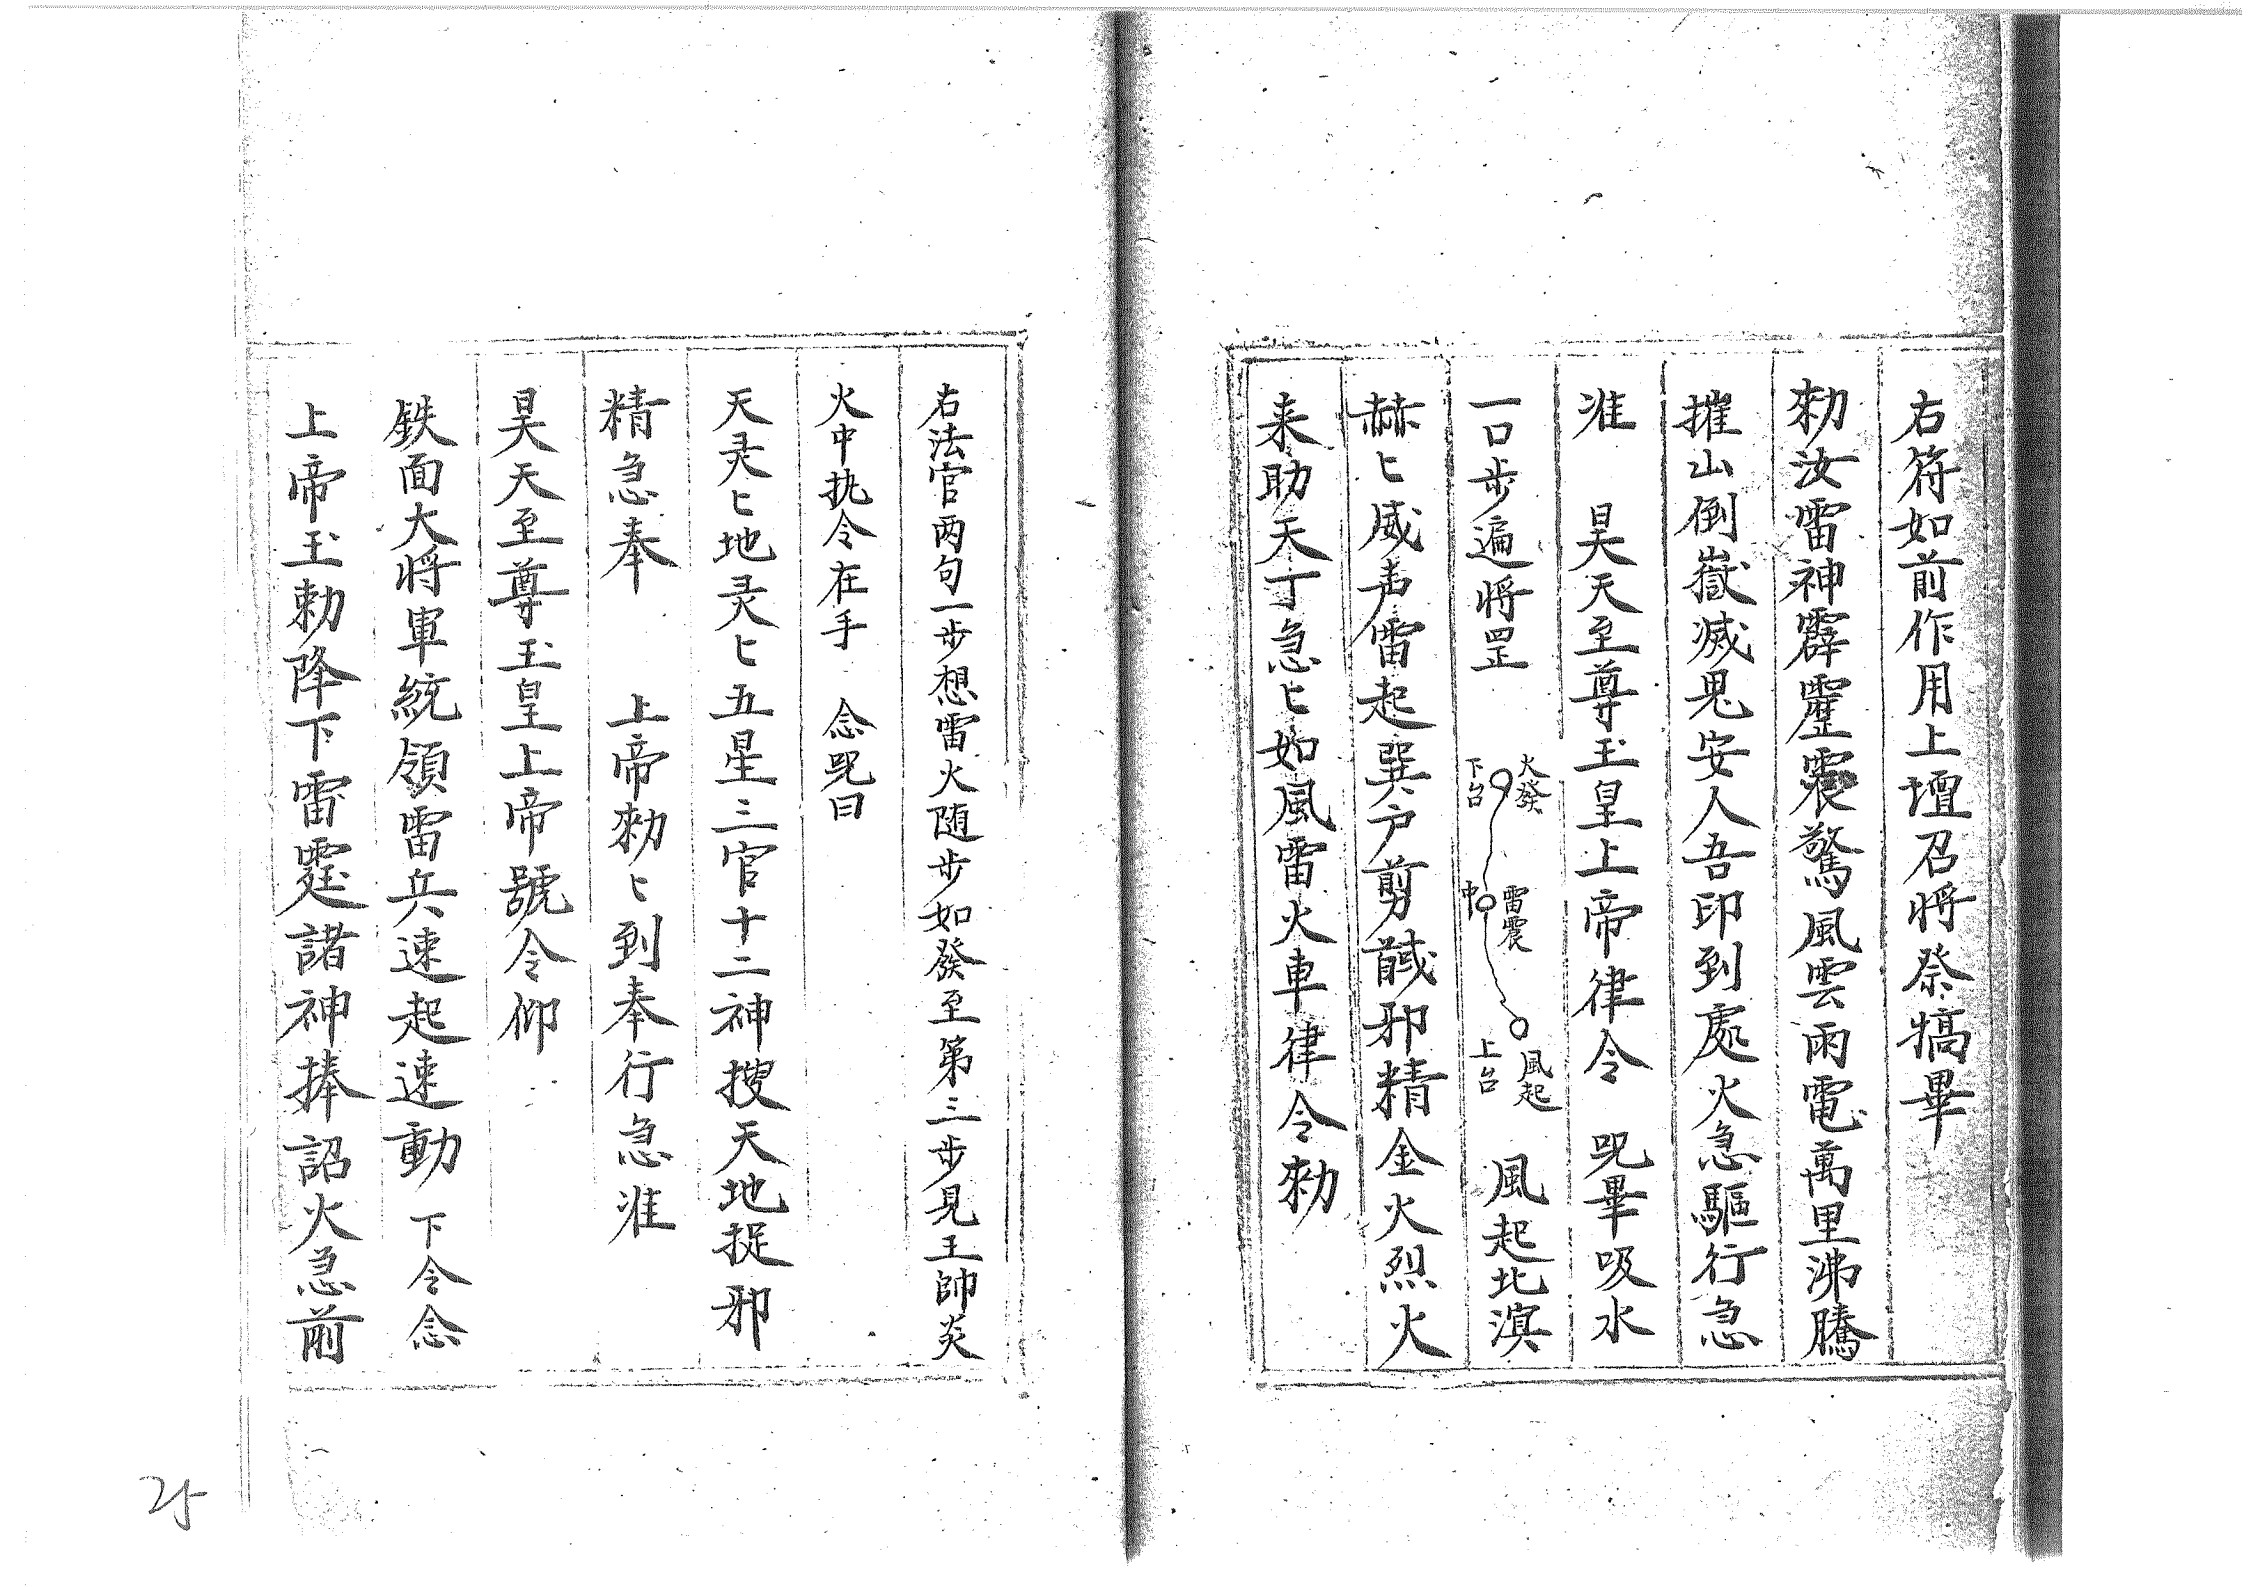 右符如前作用上壇召将祭犒畢
勑汝雷神霹靂震驚風雲雨電萬里沸騰
摧山倒嶽滅鬼安人吾印到處火急驅行急
准　昊天至尊玉皇上帝律令　咒畢吸水
一口步遍將罡　風起北溟
火發
下台
雷震
中
風起
上台
赫〻威声雷起巽户剪馘邪精金火烈火
来助天丁急〻如風雷火車律令勑
右法官两句一步想雷火随步如發至第三步見王帥炎
火中执令在手　念咒曰
天灵〻地灵〻五星三官十二神搜天地捉邪
精急奉　上帝勑〻到奉行急准
昊天至尊玉皇上帝號令仰
鉄面大将軍統領雷兵速起速動　下令念
上帝玉勅降下雷霆諸神捧詔火急前
25